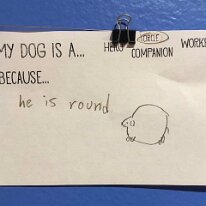 MY DOG IS A... HERO CIRCLE COMPANION WORKE
BECAUSE...
he is round